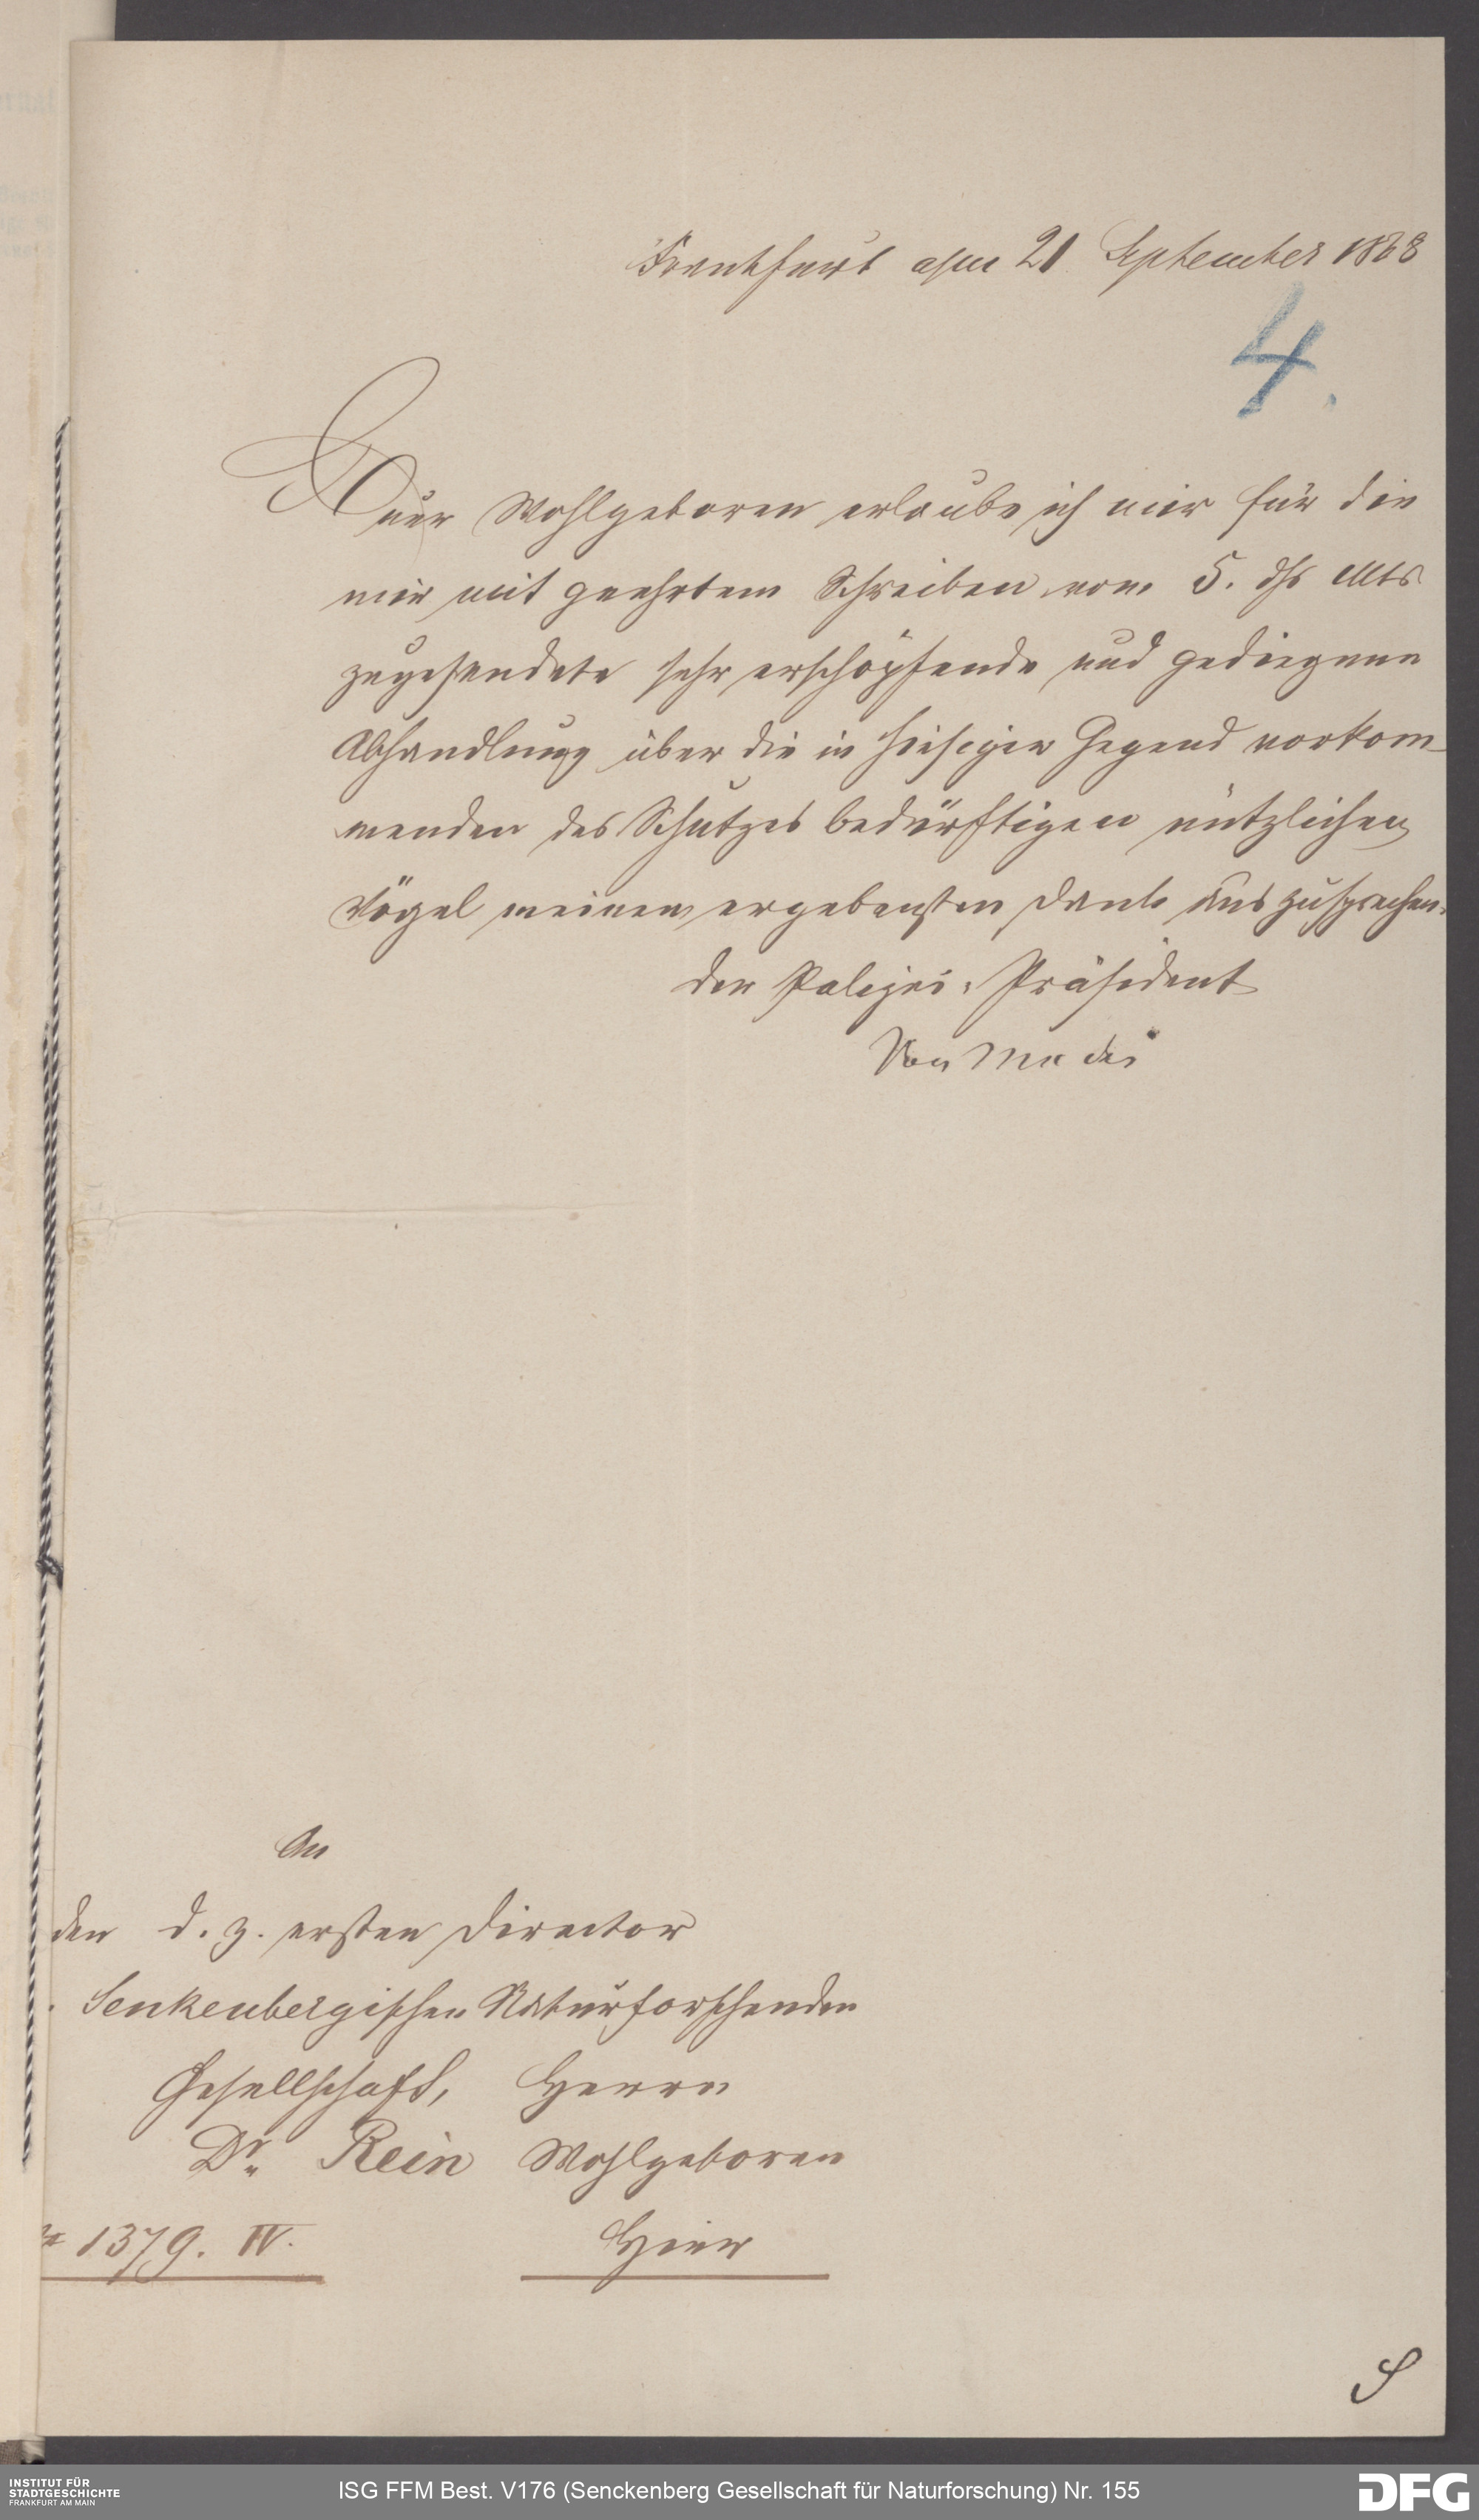 Frankfurt a/m 21 September 1868
4.
Euer Wohlgeboren erlaube ich mir für die
mir mit geehrtem Schreiben vom 5. dss Mts
zugesendete sehr erschöpfende und gediegene
Abhandlung über die in hiesiger Gegend vorkom-
menden des Schutzes bedürftigen nützlichen
Vögel meinen ergebensten Dank auszusprechen.
Der Polizei-Präsident
von Madai
An
den d. z. ersten Director
Senkenbergischen Naturforschenden
Gesellschaft, Herrn
Dr. Rein Wohlgeboren
1379. IV. Hier
INSTITUT FÜR
STADTGESCHICHTE
FRANKFURT AM MAIN
ISG FFM Best. V176 (Senckenberg Gesellschaft für Naturforschung) Nr. 155
DFG